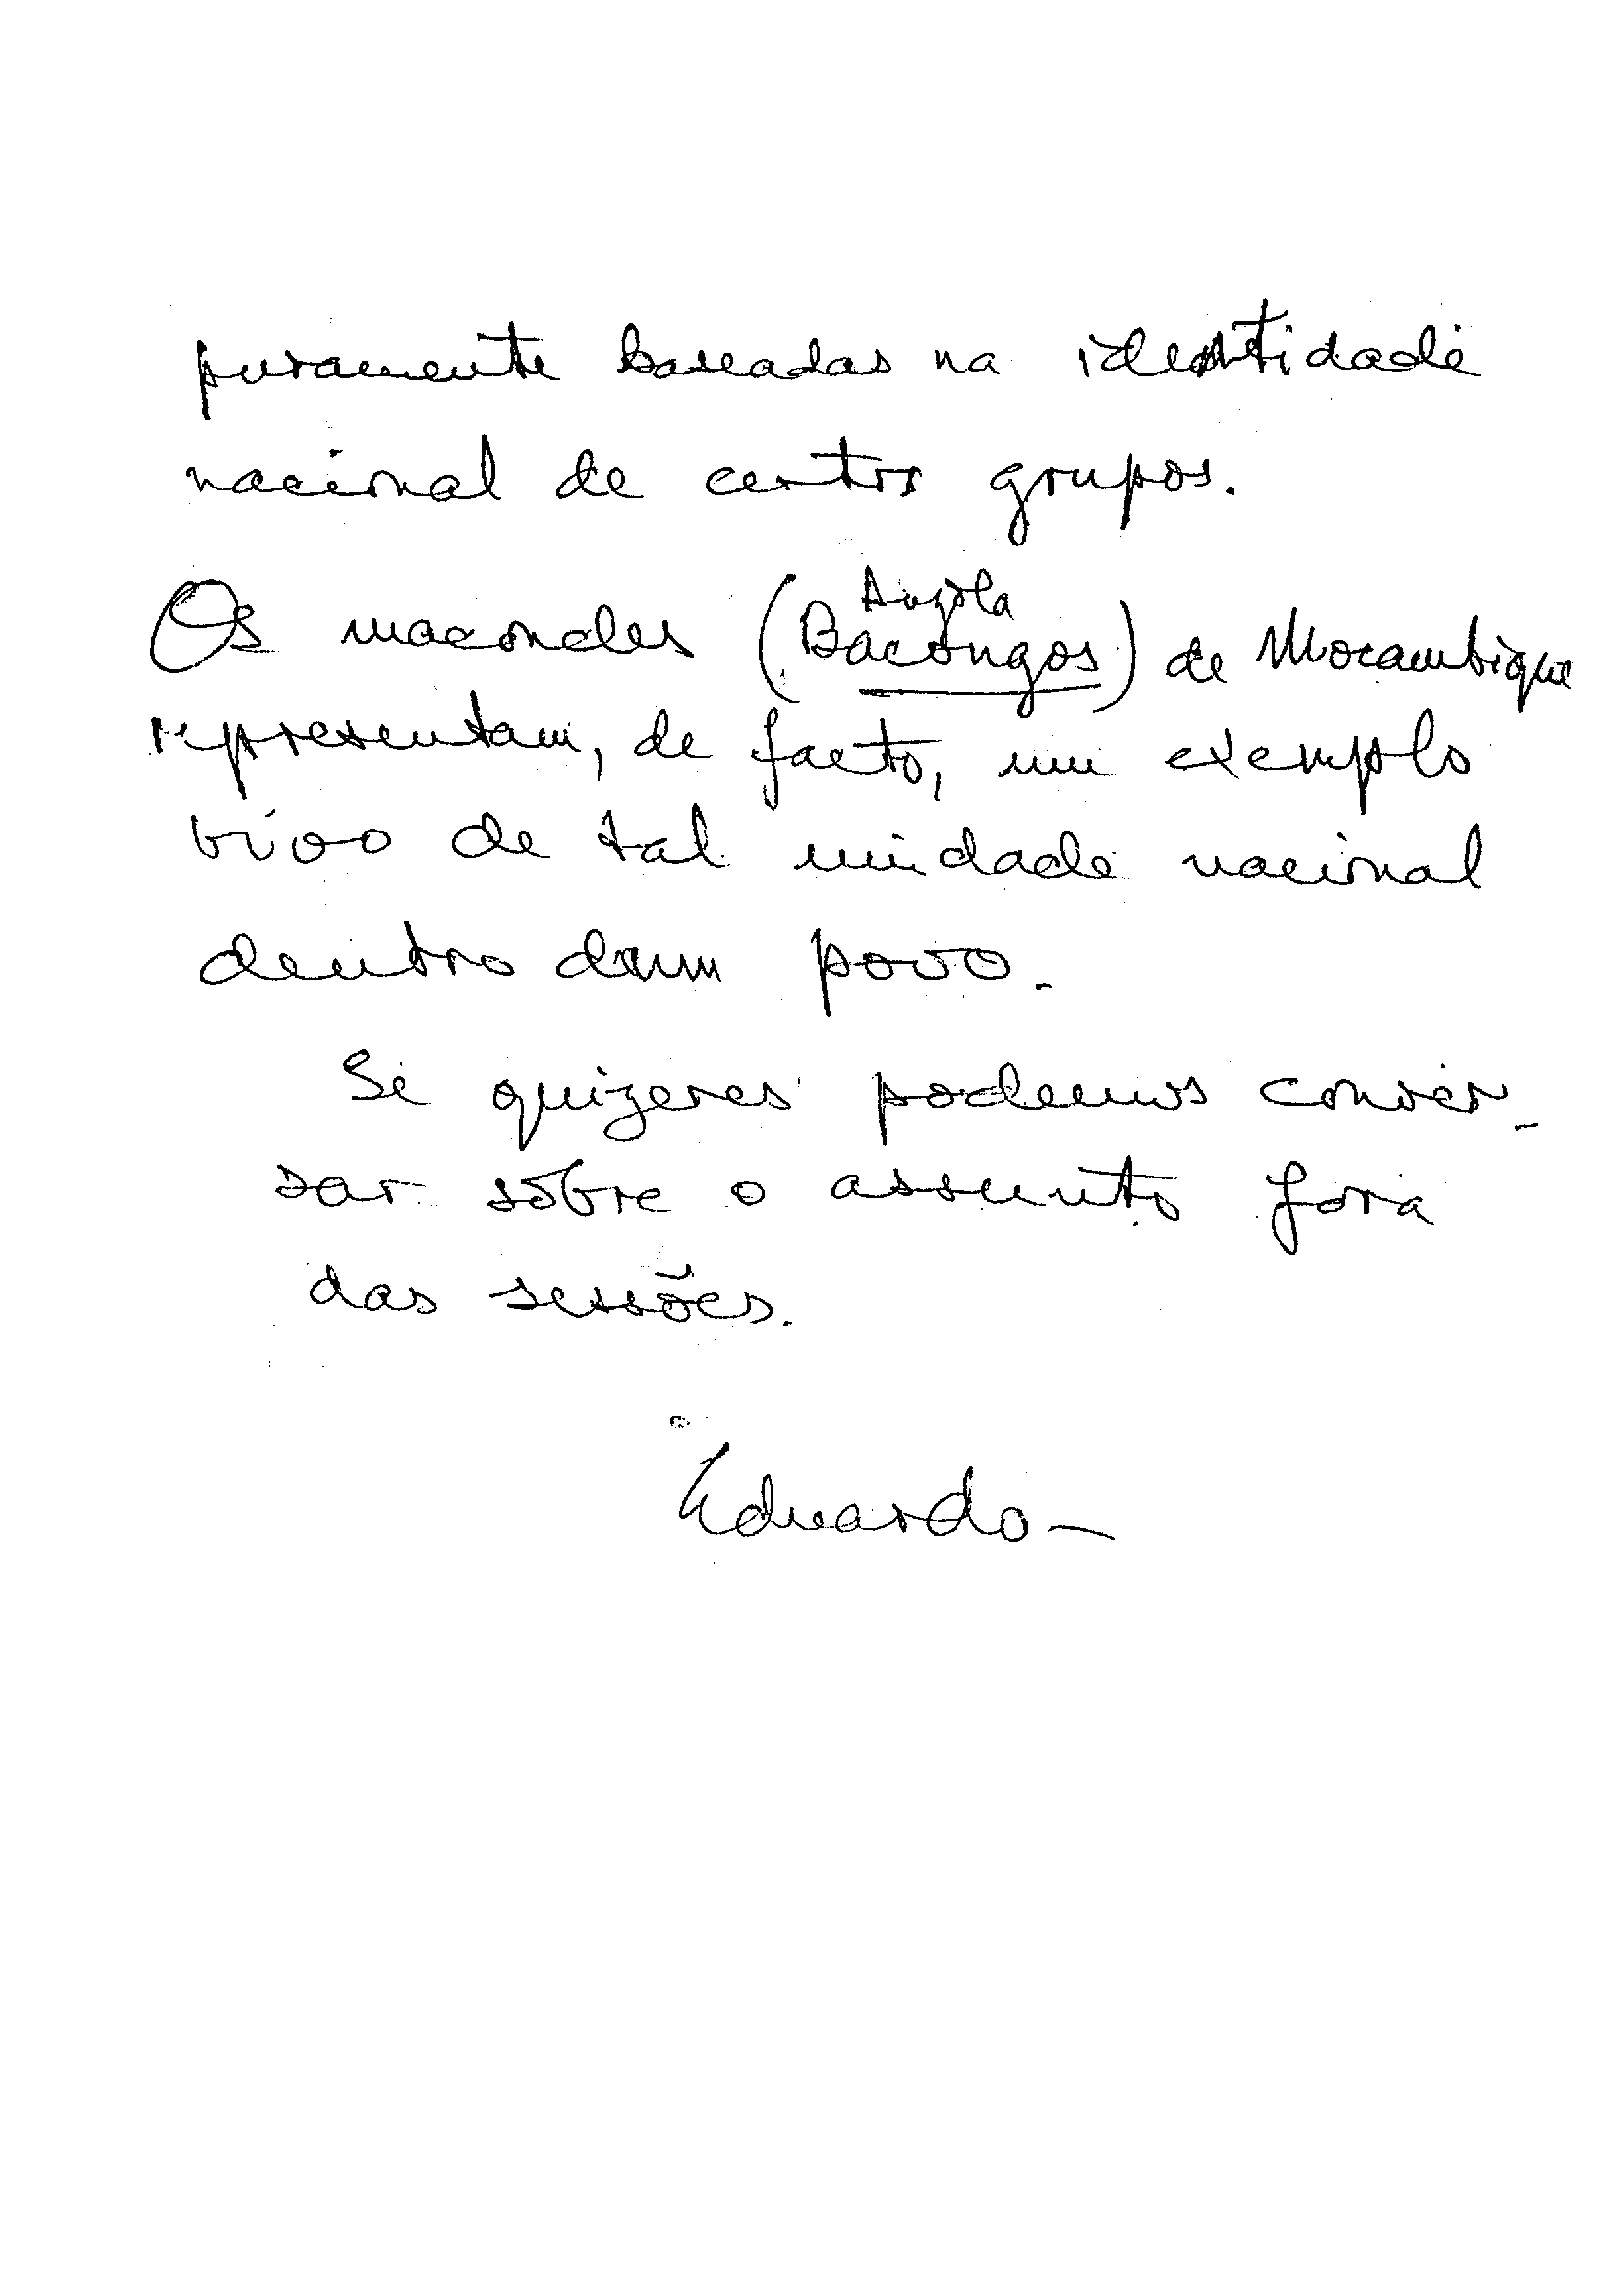 puramente baseadas na identidade
nacional de certos grupos.
Angola
Os macondes (Bacongos) de Mocambique
representam, de facto, um exemplo
vivo de tal unidade nacional
dentro dum povo.
Se quizeres podemos conver-
sar sôbre o assunto fora
das sessões.
Eduardo —